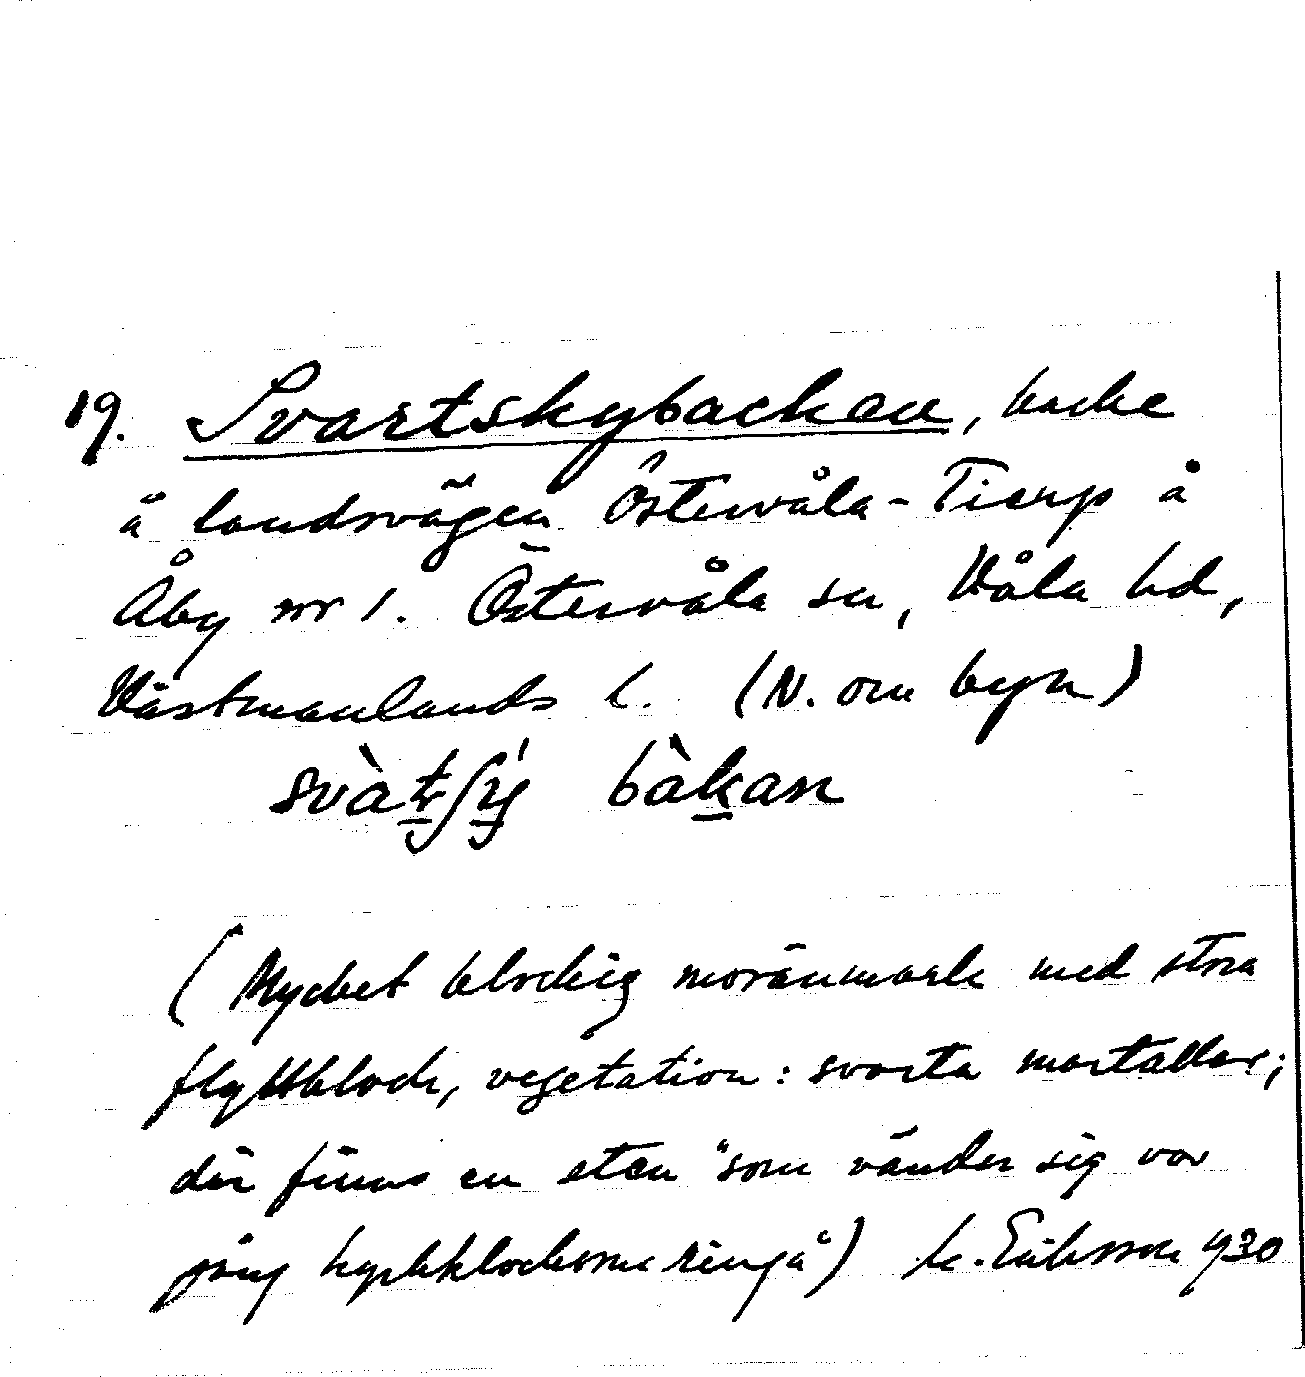 19. Svartskybacken, backe
å landsvägen Östervåla - Tierp å
Åby nr 1. Östervåla sn, Våla hd,
Västmanlands l. (N. om byn)
svàtʃý bàkan
(Mycket blockig moränmark med stora
flyttblock, vegetation: svarta martallar;
där finns en sten "som vänder sig var
gång kyrkklockorna ringa") Eriksson 930